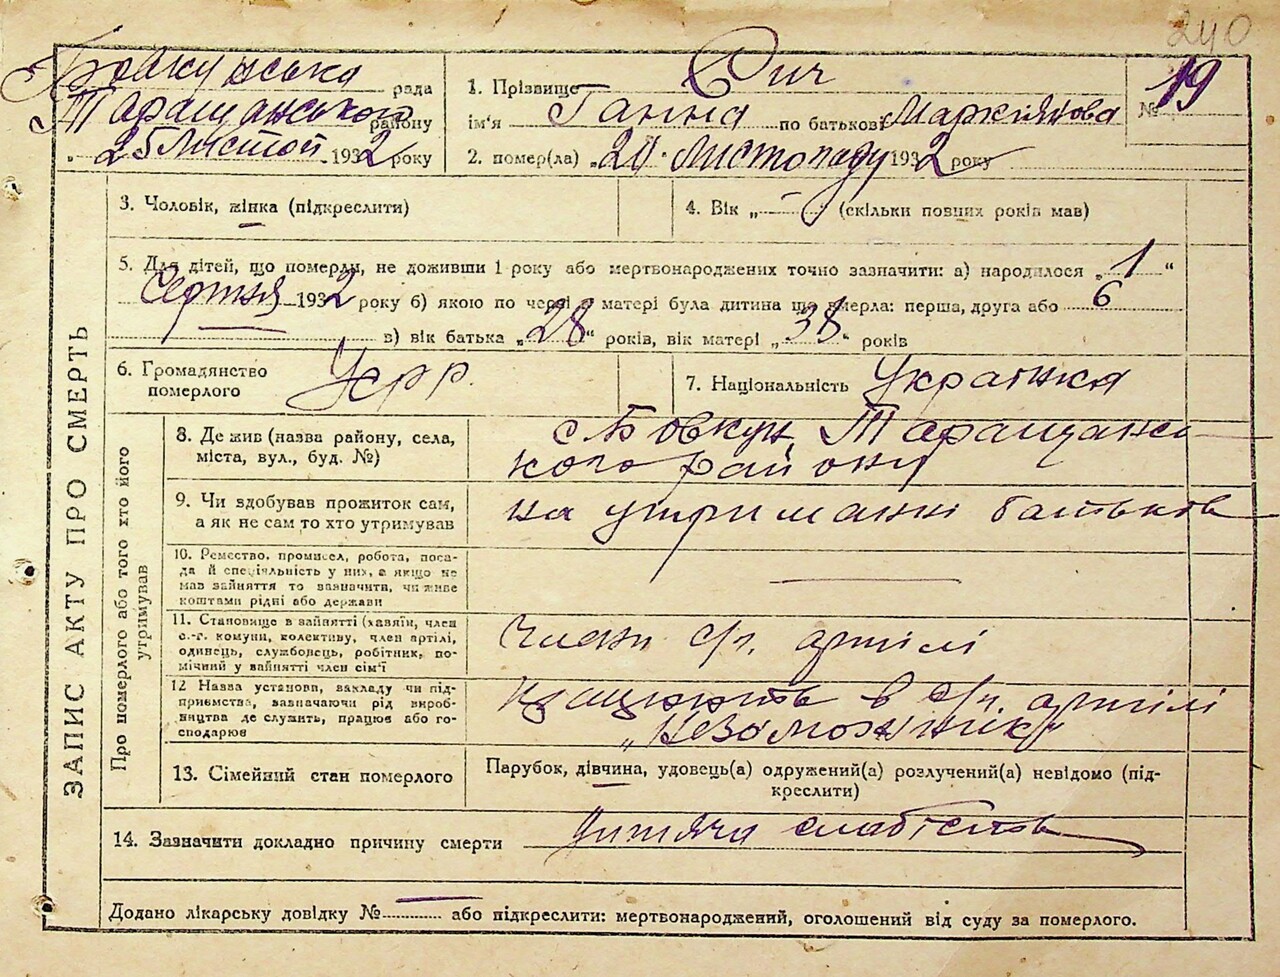 240
Бовкунська рада
Таращанського району
„ 25 Листоп 1932 року
1. Прізвище Сич
ім'я Ганна по батькові Маркіянова
2. помер(ла) „20" Листопаду 1932 року
№ 19
3. Чоловік, жінка (підкреслити)
4. Вік „ — " (скільки повних років мав)
5. Для дітей, що померли, не доживши 1 року або мертвонароджених точно зазначити: а) народилося „ 1 "
Серпня 1932 року б) якою по черзі у матері була дитина що вмерла: перша, друга або 6
в) вік батька „28" років, вік матері „38" років
6. Громадянство
померлого
Усрр.
7. Національність Українка
ЗАПИС АКТУ ПРО СМЕРТЬ
Про померлого або того хто його
утримував
8. Де жив (назва району, села,
міста, вул., буд. №)
с Бовкун, Таращансь-
кого району
9. Чи здобував прожиток сам,
а як не сам то хто утримував
на утриманні батьков
10. Ремество, промисел, робота, поса-
да й спеціяльність у них, а якщо не
мав зайняття то зазначити, чи живе
коштами рідні або держави
—
11. Становище в зайнятті (хазяїн, член
с.-г. комуни, колективу, член артілі,
одинець, службовець, робітник, по-
мічний у зайнятті член сім'ї
Член с/г. артілі
12 Назва установи, закладу чи під-
приємства, зазначаючи рід вироб-
ництва де служить, працює або го-
сподарює
працюють в с/г. артілі
„Незаможник"
13. Сімейний стан померлого
Парубок, дівчина, удовець(а) одружений(а) розлучений(а) невідомо (під-
креслити)
14. Зазначити докладно причину смерти Дитяча слабість
Додано лікарську довідку № — або підкреслити: мертвонароджений, оголошений від суду за померлого.